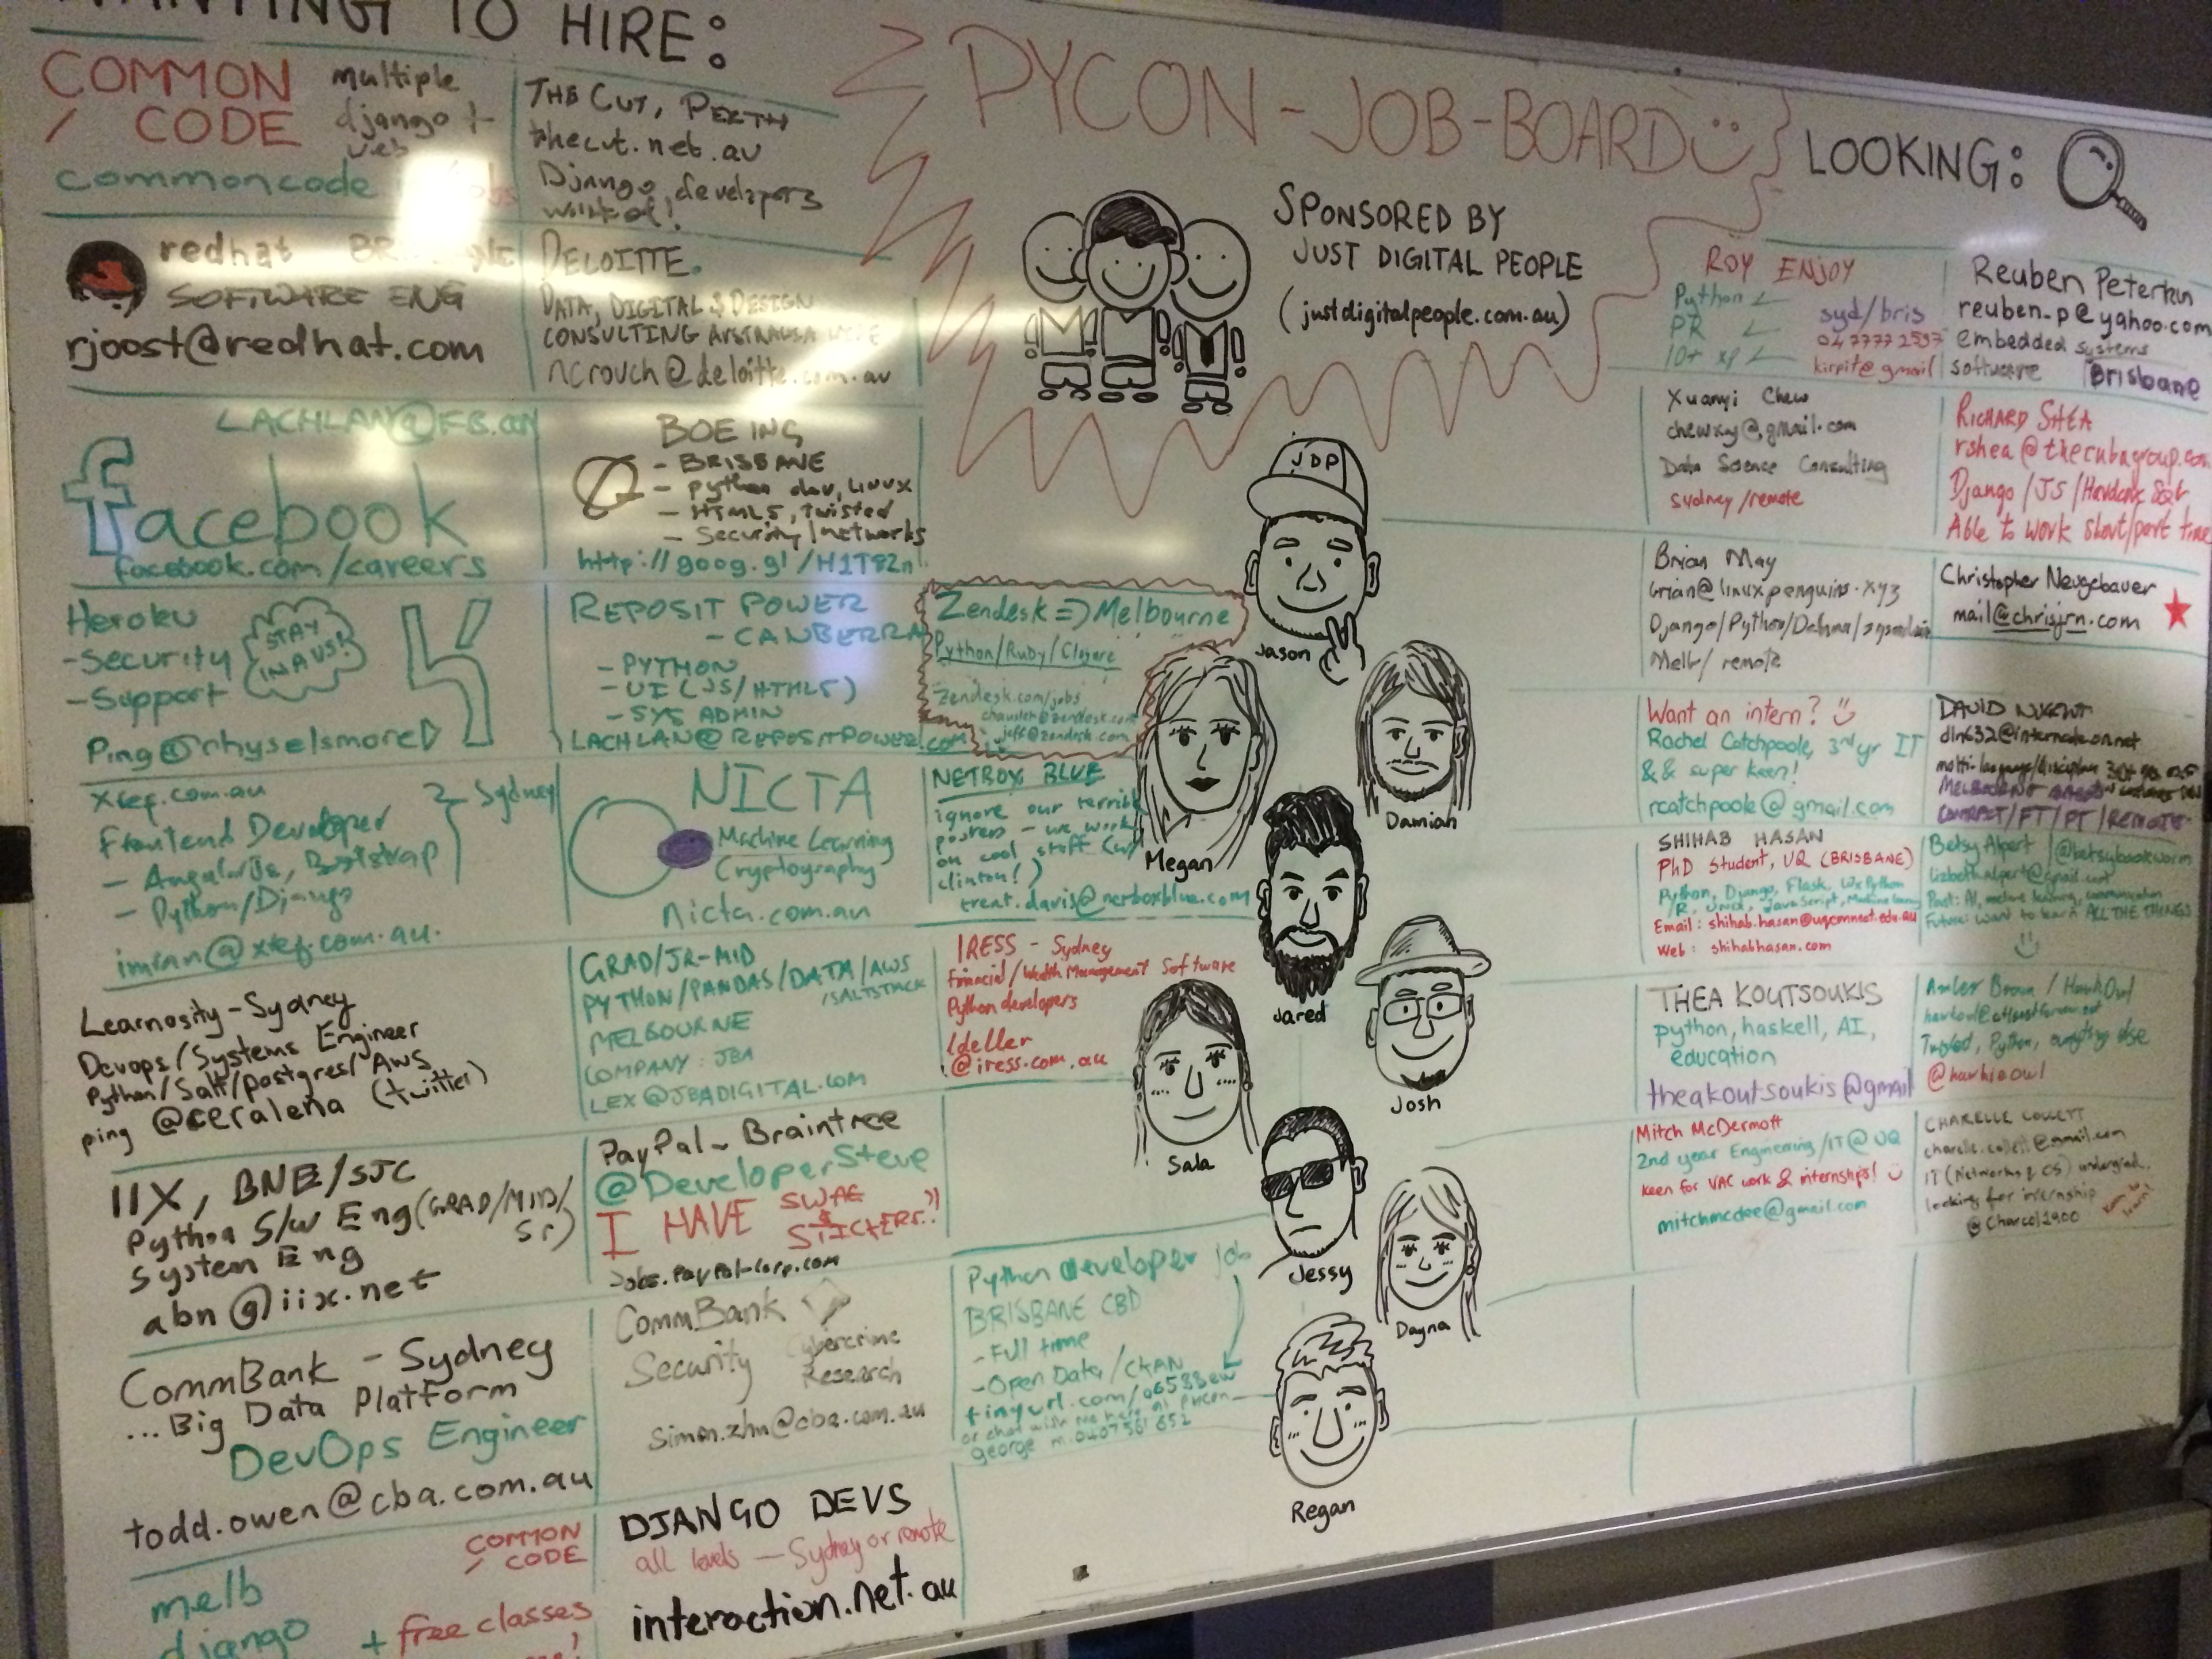 WANTING TO HIRE:
COMMON
CODE
multiple
django +
web
commoncode
THE CUT, PERTH
thecut.net.au
Django developers
wanted!
redhat
SOFTWARE ENG
rjoost@redhat.com
DELOITTE.
DATA, DIGITAL & DESIGN
CONSULTING AUSTRALIA WIDE
ncrouch@deloitte.com.au
LACHLAN@FB.COM
facebook
facebook.com/careers
BOEING
- BRISBANE
- python dev, LINUX
- HTML5, twisted
- Security/networks
http://goog.gl/H1T82n
Heroku
- Security
- Support
STAY
IN AUS!
Ping @rhyselsmore
REPOSIT POWER
- CANBERRA
- PYTHON
- UI (JS/HTML5)
- SYS ADMIN
LACHLAN@REPOSITPOWER.COM
Zendesk => Melbourne
Python/Ruby/Clojure
zendesk.com/jobs
jeff@zendesk.com
.com.au
Sydney
Frontend Developer
- AngularJs, Bootstrap
- Python/Django
NICTA
Machine Learning
Cryptography
nicta.com.au
NETBOX BLUE
ignore our terrible
posters - we work
on cool stuff (w/
clinton!)
trent.davis@netboxblue.com
Learnosity - Sydney
Devops/Systems Engineer
Python/Salt/postgres/AWS
ping @ceralena (twitter)
GRAD/JR-MID
PYTHON/PANDAS/DATA/AWS
/SALTSTACK
MELBOURNE
COMPANY: JBA
LEX@JBADIGITAL.COM
IRESS - Sydney
Financial/Wealth Management Software
Python developers
ldeller
@iress.com.au
IIX, BNE/SJC
Python S/W Eng (GRAD/MID/
Sr)
System Eng
abn@iix.net
PayPal - Braintree
@DeveloperSteve
I HAVE SWAG
& STICKERS!!
Jobs.PayPal-Corp.com
CommBank - Sydney
... Big Data Platform
DevOps Engineer
todd.owen@cba.com.au
CommBank
Security
Cybercrime
Research
simon.zhu@cba.com.au
Python developer job
BRISBANE CBD
- Full time
- Open Data/CKAN
or chat with me here at PyCon
george m. 0407 561 652
COMMON
CODE
melb
django
+ free classes
DJANGO DEVS
all levels - Sydney or remote
interaction.net.au
PYCON-JOB-BOARD
SPONSORED BY
JUST DIGITAL PEOPLE
(justdigitalpeople.com.au)
JDP
Jason
Megan
Damian
Jared
Josh
Sala
Jessy
Dayna
Regan
LOOKING:
ROY ENJOY
Python
PR
10+ xp
syd/bris
kirpit@gmail
Reuben Peterkin
reuben_p@yahoo.com
embedded systems
software
Brisbane
Xuanyi Chew
chewxy@gmail.com
Data Science Consulting
Sydney/remote
RICHARD SHEA
rshea@thecubagroup.com
Django/JS/Hardcore SQL
Able to work short/part time
Brian May
brian@linuxpenguins.xyz
Django/Python/Debian/sysadmin
Melb/remote
Christopher Neugebauer
mail@chrisjrn.com
Want an intern?
Rachel Catchpoole, 3rd yr IT
&& super keen!
rcatchpoole@gmail.com
DAVID NUGENT
CONTRACT/FT/PT/REMOTE
SHIHAB HASAN
PhD Student, UQ (BRISBANE)
Python, Django, Flask, WxPython
/R, Unix, JavaScript, Machine Learning
Email: shihab.hasan@uqconnect.edu.au
Web: shihabhasan.com
Betsy Alpert
@betsybookworm
Past: AI, machine learning, communication
Future: want to learn ALL THE THINGS
THEA KOUTSOUKIS
python, haskell, AI,
education
theakoutsoukis@gmail
Amber Brown / HawkOwl
Twisted, Python, everything else
Mitch McDermott
2nd year Engineering/IT @ UQ
Keen for VAC work & internships!
mitchmcdee@gmail.com
CHARELLE COLLETT
IT (Networks & CS) undergrad,
looking for internship
@Charcol1900
Keen to
learn!